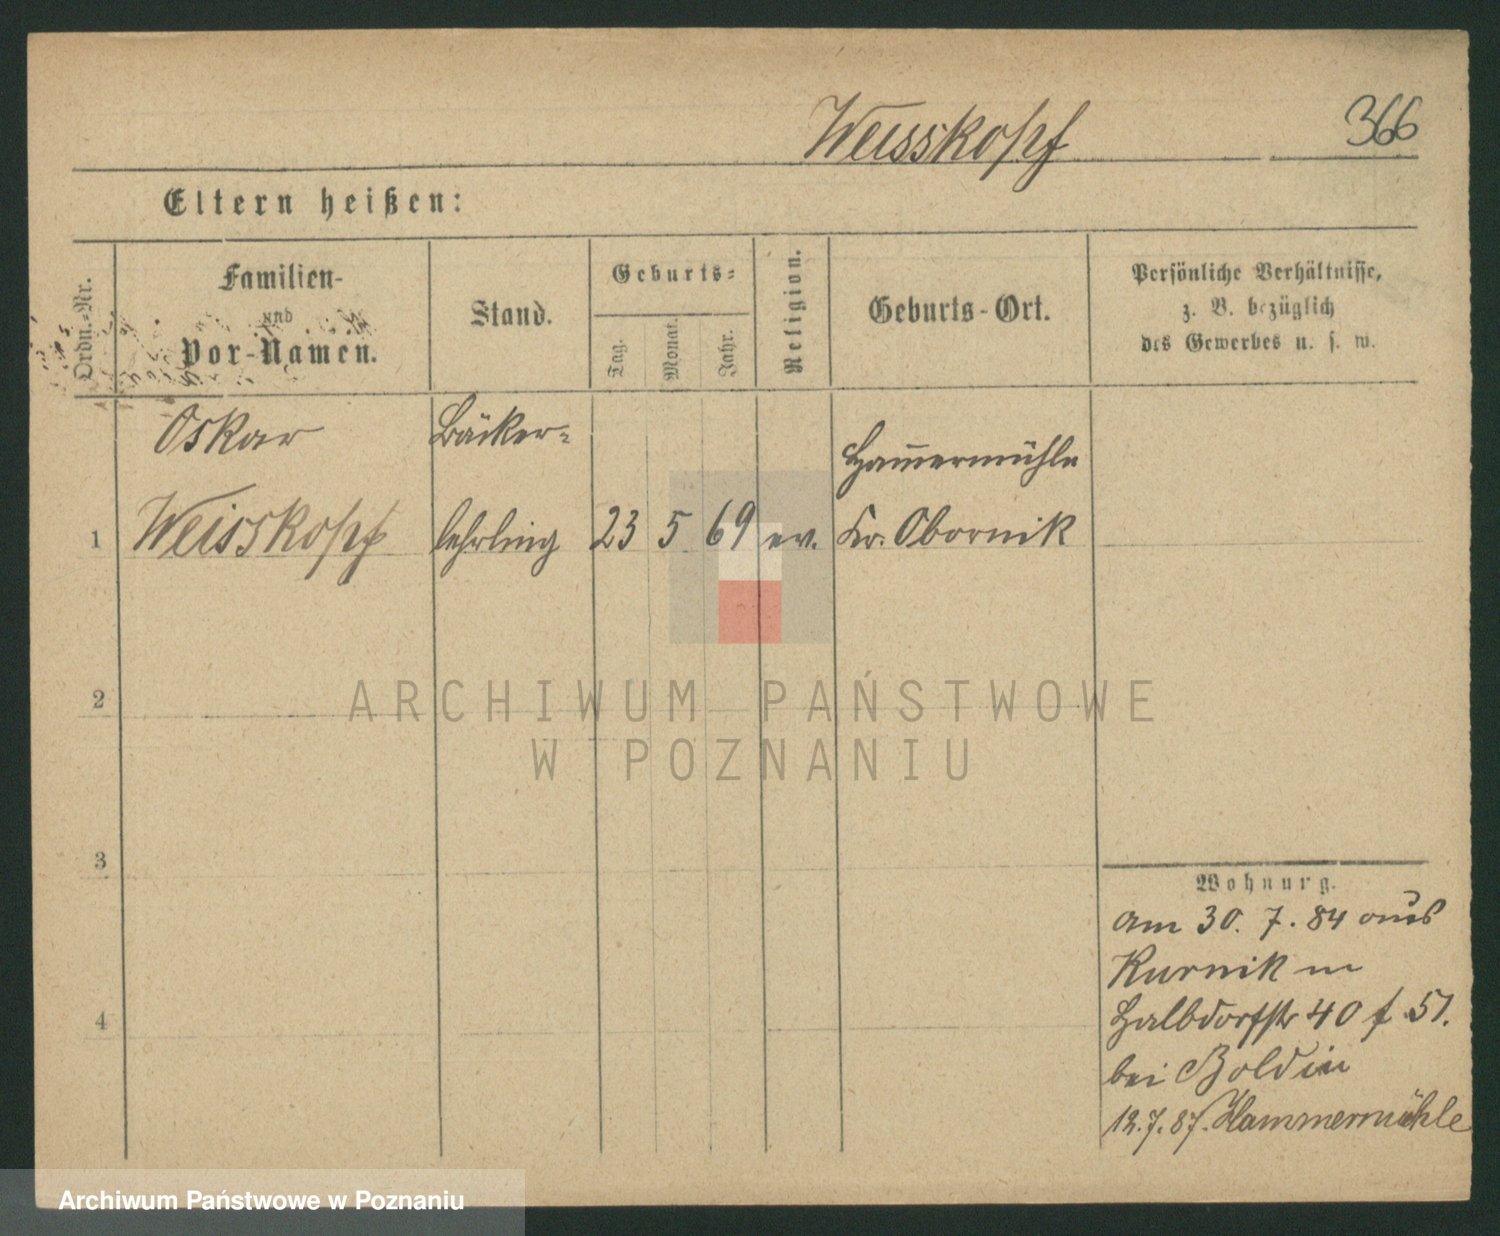 Weisskopf
366
Eltern heißen:
Ordn.-Nr.
Familien-
und
Vor-Namen.
Stand.
Geburts-
Tag.
Monat.
Jahr.
Religion.
Geburts-Ort.
Persönliche Verhältnisse,
z. B. bezüglich
des Gewerbes u. s. w.
Oskar
Bäcker-
Ham̅ermühle
1
Weisskopf
lehrling
23
5
69
ev.
Kr. Obornik
2
3
4
ARCHIWUM PAŃSTWOWE
W POZNANIU
Wohnung.
am 30. 7. 84 aus
Kurnik in
Halbdorfstr 40 f. 51.
bei Boldin
12.7.87. Hammermühle
Archiwum Państwowe w Poznaniu